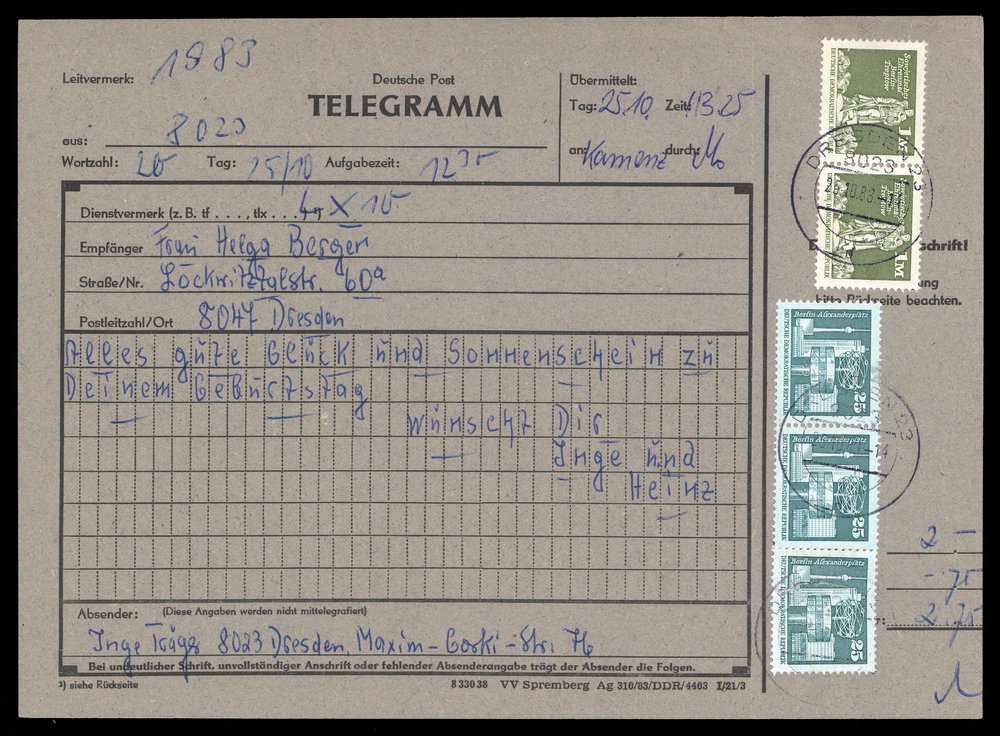 Leitvermerk: 1983
Deutsche Post
TELEGRAMM
Übermittelt:
Tag: 25.10. Zeit: 13.25
an: Kamenz durch:
aus: 8023
Wortzahl: 20 Tag: 25/10 Aufgabezeit: 12 35
Dienstvermerk (z. B. tf . . . , tlx . . . x 15
Empfänger Frau Helga Berger
Straße/Nr. Lockwitztalstr. 60a
Postleitzahl/Ort 8047 Dresden
Alles gute Glück und Sonnenschein zu
Deinem Geburtstag
wünscht Dir
Inge und
Heinz
Absender: (Diese Angaben werden nicht mittelegrafiert)
Inge Träger 8023 Dresden, Maxim-Gorki-Str. 76
Bei undeutlicher Schrift, unvollständiger Anschrift oder fehlender Absenderangabe trägt der Absender die Folgen.
²) siehe Rückseite
8 330 38 VV Spremberg Ag 310/83/DDR/4403 I/21/3
Sowjetisches
Ehrenmal
Berlin-
Treptow
1M
DEUTSCHE DEMOKRATISCHE
DRESDEN 23
8023
Sowjetisches
Ehrenmal
Berlin-
Treptow
1M
DEUTSCHE DEMOKRATISCHE REPUBLIK
10.83
schrift!
ung
bitte Rückseite beachten.
Berlin Alexanderplatz
DEUTSCHE DEMOKRATISCHE REPUBLIK
25
Berlin Alexanderplatz
DEUTSCHE DEMOKRATISCHE REPUBLIK
25
Berlin Alexanderplatz
DEUTSCHE DEMOKRATISCHE REPUBLIK
25
2 –
-.75
2.75